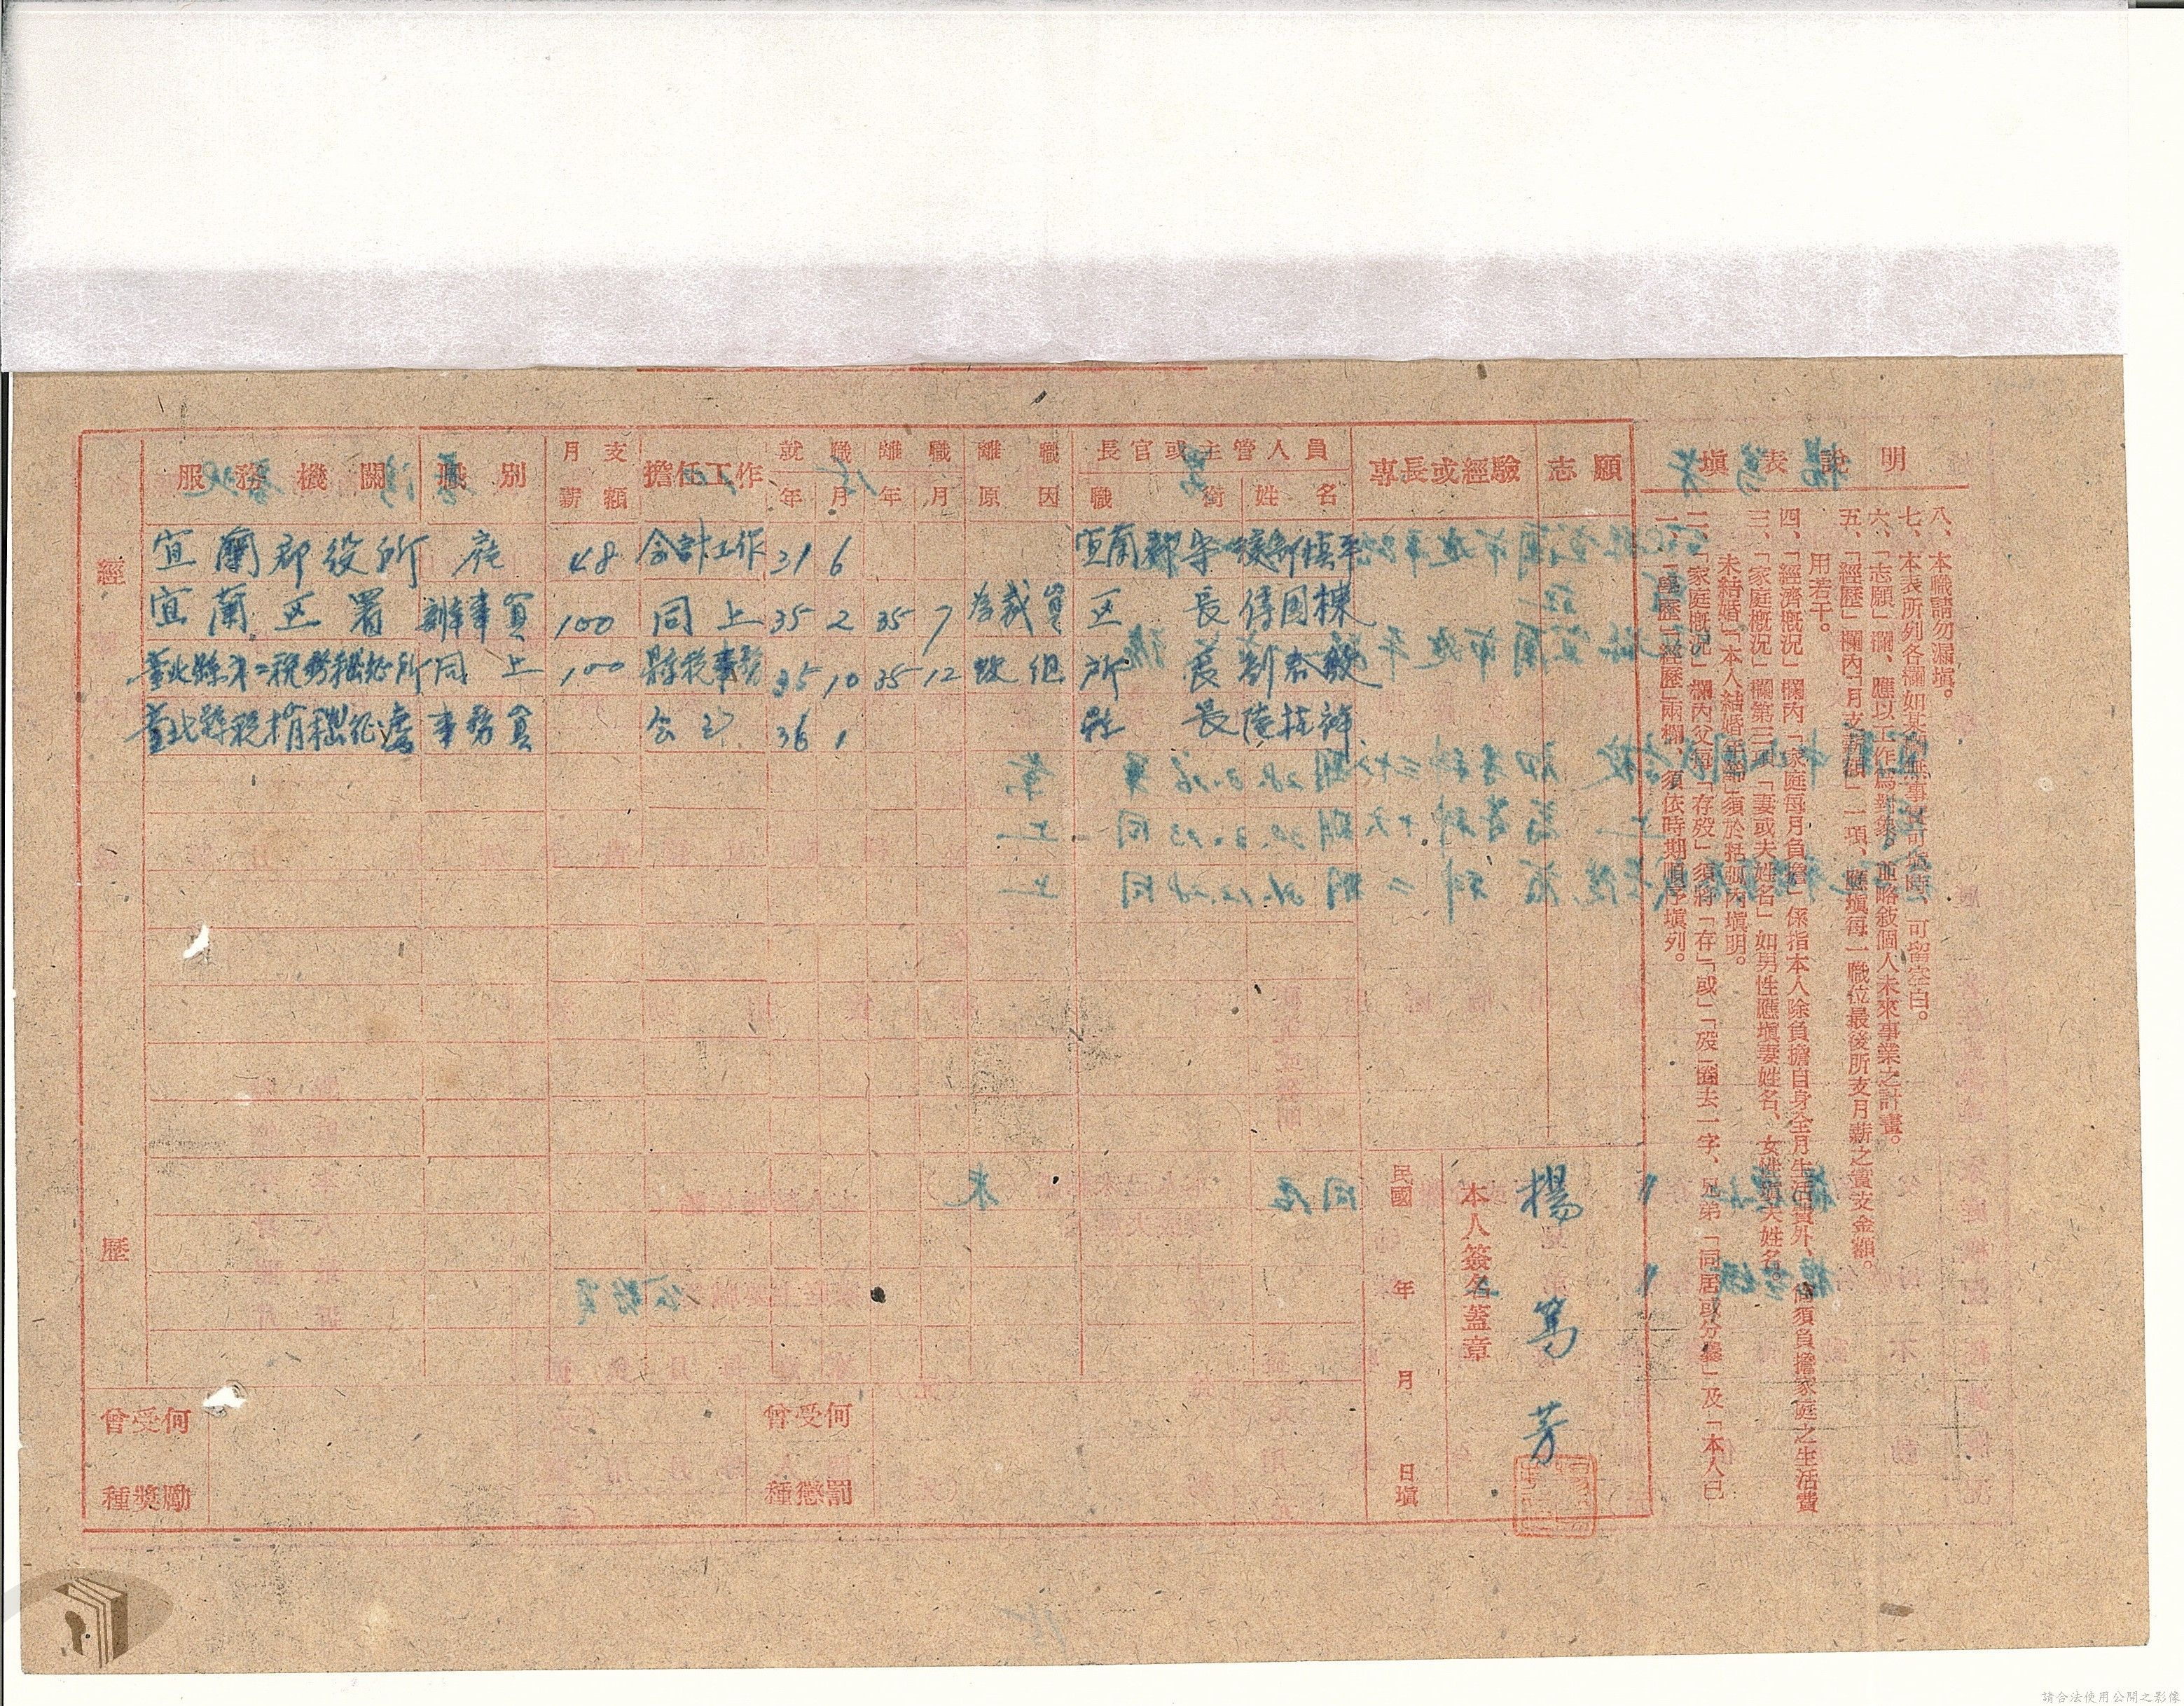 服務機關 職別 月支薪額 擔任工作 就職年月 離職年月 離職原因 長官或主管人員 職銜 姓名 專長或經驗 志願
經歷
宜蘭郡役所 雇 48 會計工作 31 6 宜蘭郡守
宜蘭区署 辦事員 100 同上 35 2 35 7 為裁員 区長 傅国棟
臺北縣第二稅務稽征所 同上 100 縣稅事務 35 10 35 12 改組 所長
臺北縣稅捐稽征處 事務員 36 1 長
曾受何種獎勵
曾受何種懲罰
民國 年 月 日填
本人簽名蓋章
楊篤芳
填表說明
一、「學歷」「經歷」兩欄、須依時期順序填列。
二、「家庭概況」欄內父母「存歿」須將「存」「或」「歿」圈去一字、兄弟「同居或分爨」及「本人已
未結婚」「本人結婚年齡」須於括弧內填明。
三、「家庭概況」欄第三項「妻或夫姓名」如男性應填妻姓名、女性填夫姓名。
四、「經濟概況」欄內「家庭每月負擔」係指本人除負擔自身全月生活費外、尚須負擔家庭之生活費
用若干。
五、「經歷」欄內「月支薪額」一項、應填每一職位最後所支月薪之實支金額。
六、「志願」欄、應以工作為對象。並略敍個人未來事業之計畫。
七、本表所列各欄如某欄無事實可填時、可留空白。
八、本職請勿漏填。
請合法使用公開之影像